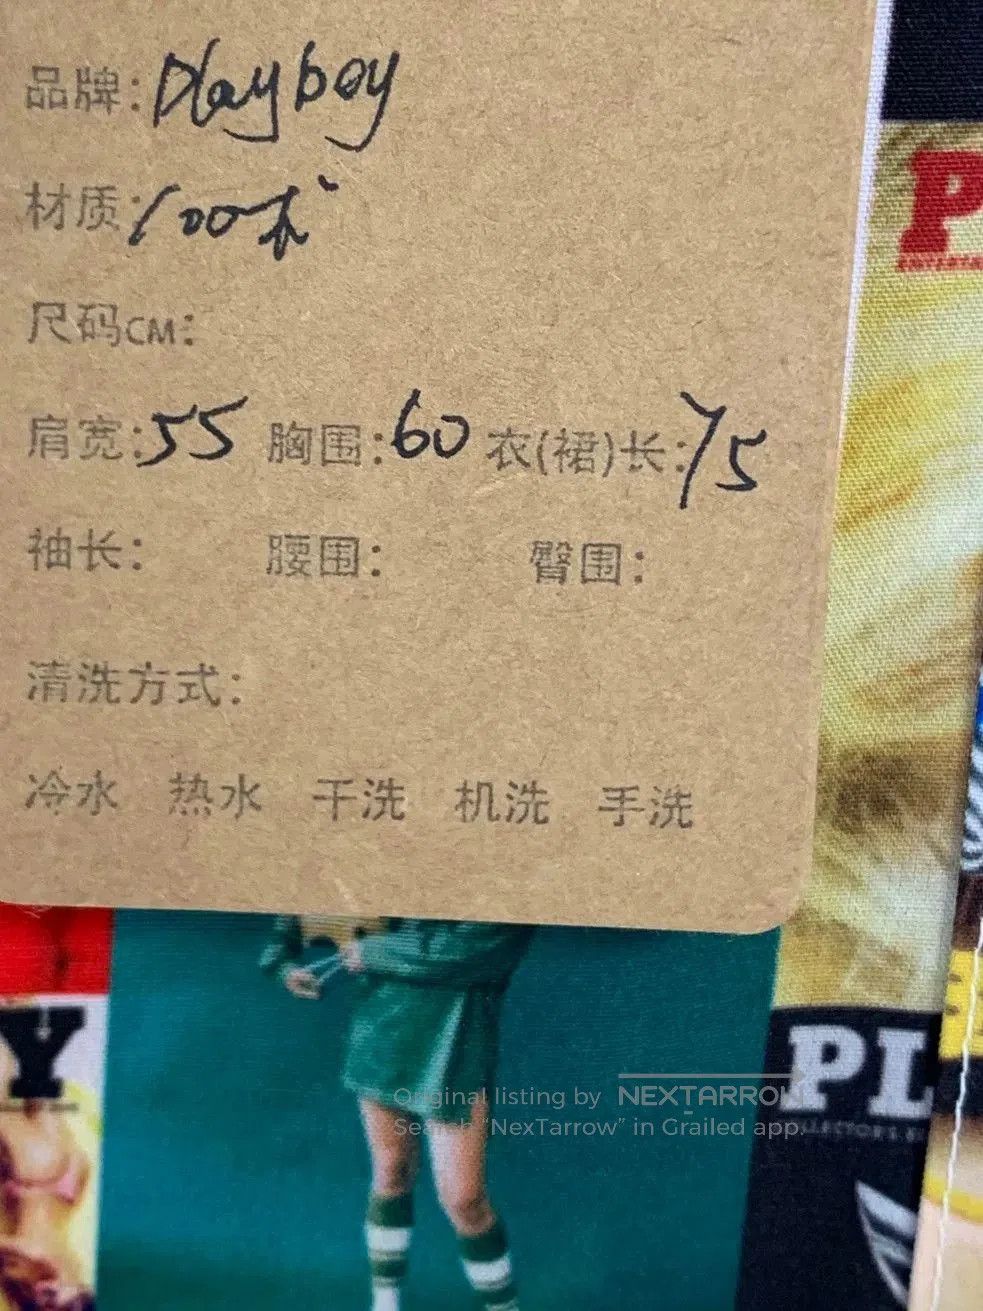 品牌: Playboy
材质: 100木
尺码CM:
肩宽: 55 胸围: 60 衣(裙)长: 75
袖长: 腰围: 臀围:
清洗方式:
冷水 热水 干洗 机洗 手洗
P
Y
PL
Original listing by NEXTARROW
Search “NexTarrow” in Grailed app.